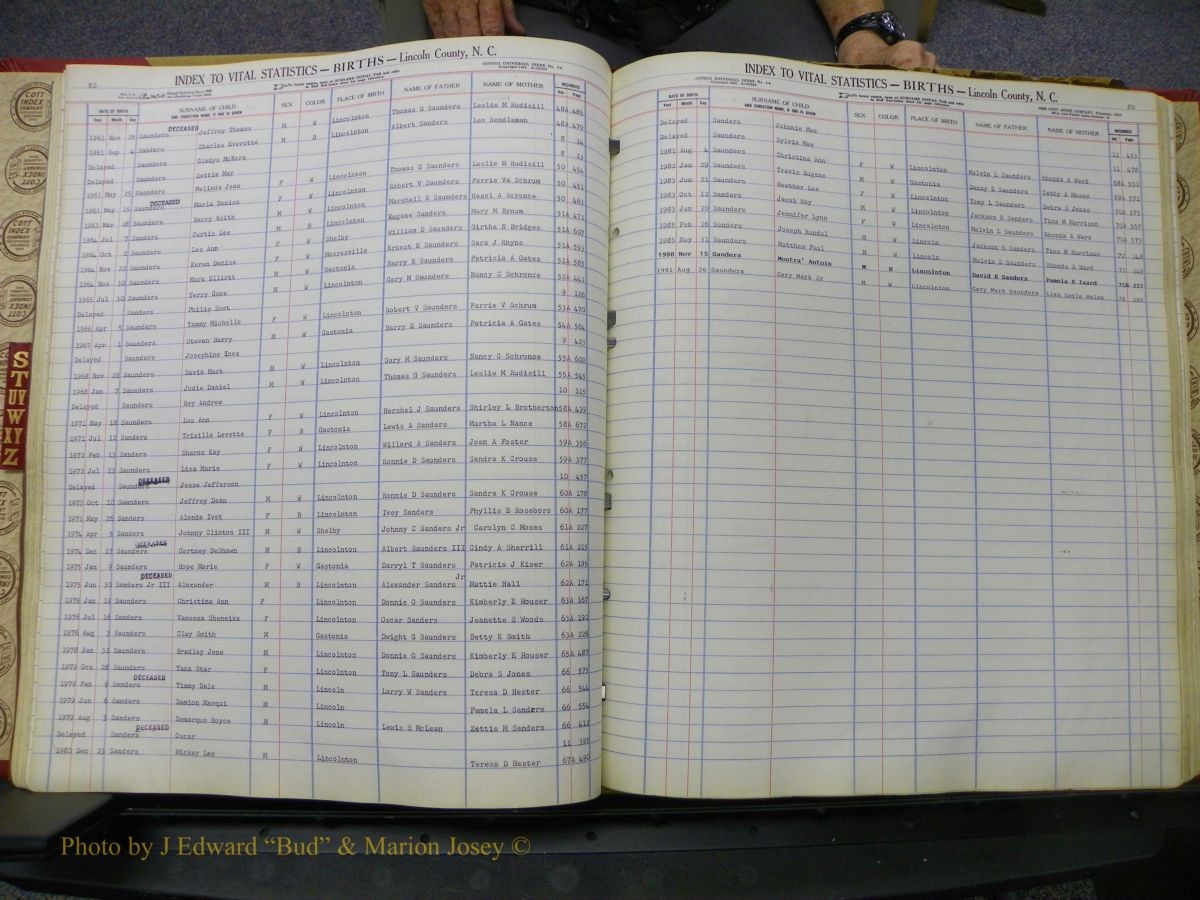 80
INDEX TO VITAL STATISTICS — BIRTHS — Lincoln County, N. C.
COTTCO UNIVERSAL INDEX No. 1-A
DATE OF BIRTH
SURNAME OF CHILD
AND CHRISTIAN NAME, IF ONE IS GIVEN
SEX
COLOR
PLACE OF BIRTH
NAME OF FATHER
NAME OF MOTHER
RECORDED
Year Month Day
Vol. Page
1961 Nov 25 Saunders DECEASED Jeffrey Thomas M W Lincolnton Thomas G Saunders Leslie M Rudisill 48A 486
1961 Sep 4 Sanders Charles Everette M B Lincolnton Albert Sanders Leo Rendleman 48A 479
Delayed Saunders Gladys McNora 8 14
Delayed Saunders Zettie May 8 13
1963 May 25 Saunders Melinda Jean F W Lincolnton Thomas G Saunders Leslie M Rudisill 50 454
1963 May 15 Saunders DECEASED Maria Denise F W Lincolnton Robert V Saunders Ferrie Va Schrum 50 451
1963 Mar 28 Saunders Barry Keith M W Lincolnton Marshall H Saunders Hazel A Scronce 50 463
1964 Jul 7 Sanders Curtis Lee M B Lincolnton Eugene Sanders Mary M Bynum 51A 471
1964 Oct 2 Saunders Lee Ann F W Shelby William D Saunders Girtha N Bridges 51A 607
1964 Nov 20 Saunders Keren Denise F W Mooresville Ernest E Saunders Sara J Rhyne 51A 593
1964 Nov 30 Saunders Mark Elliott M W Gastonia Barry E Saunders Patricia A Gates 51A 585
1965 Jul 30 Saunders Terry Gene M W Lincolnton Gary M Saunders Nancy G Schronce 52A 441
Delayed Saunders Philip Scot 9 126
1966 Apr 5 Saunders Tammy Michelle F W Lincolnton Robert V Saunders Farrie V Schrum 53A 470
1967 Apr 1 Saunders Steven Barry M W Gastonia Barry E Saunders Patricia A Gates 54A 564
Delayed Saunders Josephine Inez 9 423
1968 Nov 29 Saunders David Mark M W Lincolnton Gary M Saunders Nancy G Schronce 55A 600
1968 Jan 7 Saunders Jodie Daniel M W Lincolnton Thomas G Saunders Leslie M Rudisill 55A 545
Delayed Saunders Roy Andrew 10 115
1971 May 18 Saunders Lou Ann F W Lincolnton Hershel J Saunders Shirley L Brotherton 58A 439
1971 Jul 12 Sanders Trizilla Levette F B Gastonia Lewis A Sanders Martha L Nance 58A 672
1972 Feb 13 Sanders Sharon Kay F W Lincolnton Willard A Sanders Joan A Foster 59A 356
1972 Jul 23 Saunders Lisa Marie F W Lincolnton Ronnie D Saunders Sandra K Crouse 59A 377
Delayed Saunders DECEASED Jesse Jefferson 10 457
1973 Oct 10 Saunders Jeffrey Dean M W Lincolnton Ronnie D Saunders Sandra K Crouse 60A 178
1973 May 26 Sanders Alonda Ivet F B Lincolnton Ivey Sanders Phyllis E Roseboro 60A 177
1974 Apr 5 Sanders Johnny Clinton III M W Shelby Johnny C Sanders Jr Carolyn C Moses 61A 227
1974 Dec 17 Saunders DECEASED Cortney DeShawn M B Lincolnton Albert Saunders III Cindy A Sherrill 61A 215
1975 Jan 9 Saunders Hope Marie F W Gastonia Darryl T Saunders Patricia J Kiser 62A 195
1975 Jun 30 Sanders Jr III DECEASED Alexander M B Lincolnton Alexander Sanders Jr Mattie Hall 62A 171
1976 Jan 19 Saunders Christina Ann F Lincolnton Donnie G Saunders Kimberly E Houser 63A 167
1976 Jul 16 Sanders Vanessa Sheneika F Lincolnton Oscar Sanders Jeanette S Woods 63A 192
1976 Aug 3 Saunders Clay Smith M Gastonia Dwight G Saunders Betty K Smith 63A 226
1978 Jan 31 Saunders Bradley Jene M Lincolnton Donnie G Saunders Kimberly E Houser 65A 487
1979 Oct 28 Saunders Tana Star F Lincolnton Tony L Saunders Debra S Jones 66 575
1979 Feb 9 Sanders DECEASED Timmy Dale M Lincoln Larry W Sanders Teresa D Hester 66 544
1979 Jun 6 Sanders Damion Marqui M Lincoln Pamela L Sanders 66 554
1979 Aug 3 Sanders Demarqus Boyce M Lincoln Lewis S McLean Zettie M Sanders 66 412
Delayed Sanders DECEASED Oscar 11 395
1980 Dec 23 Sanders Mickey Lee M Lincolnton Teresa D Hester 67A 492
INDEX TO VITAL STATISTICS — BIRTHS — Lincoln County, N. C.
COTTCO UNIVERSAL INDEX No. 1-A
80
DATE OF BIRTH
SURNAME OF CHILD
AND CHRISTIAN NAME, IF ONE IS GIVEN
SEX
COLOR
PLACE OF BIRTH
NAME OF FATHER
NAME OF MOTHER
RECORDED
Year Month Day
Vol. Page
Delayed Sanders Johnnie Mae 11 453
Delayed Saunders Sylvia Mae 11 478
1981 Aug 4 Saunders Christina Ann F W Lincolnton Melvin L Saunders Rhonda A Ward 68A 550
1982 Jan 29 Saunders Travis Eugene M W Gastonia Danny E Saunders Cathy A Moses 69A 571
1983 Jun 21 Saunders Heather Lee F W Lincolnton Tony L Saunders Debra S Jones 70A 575
1983 Oct 12 Sanders Jacob Ray M W Lincolnton Jackson R Sanders Tina M Harrison 70A 567
1983 Jun 20 Saunders Jennifer Lynn F W Lincolnton Melvin L Saunders Rhonda A Ward 70A 573
1985 Feb 26 Sanders Joseph Randal M W Lincoln Jackson R Sanders Tina M Harrison 72 348
1985 May 31 Saunders Matthew Paul M W Lincoln Melvin L Saunders Rhonda A Ward 72 349
1988 Nov 15 Sanders Montra' Antoin M B Lincolnton David E Sanders Pamela E Izard 75B 377
1991 Aug 26 Saunders Gary Mark Jr M W Lincolnton Gary Mark Saunders Lisa Gayle Helms 78 380
COTT INDEX COMPANY
S
T
UV
W
XY
Z
Photo by J Edward “Bud” & Marion Josey ©